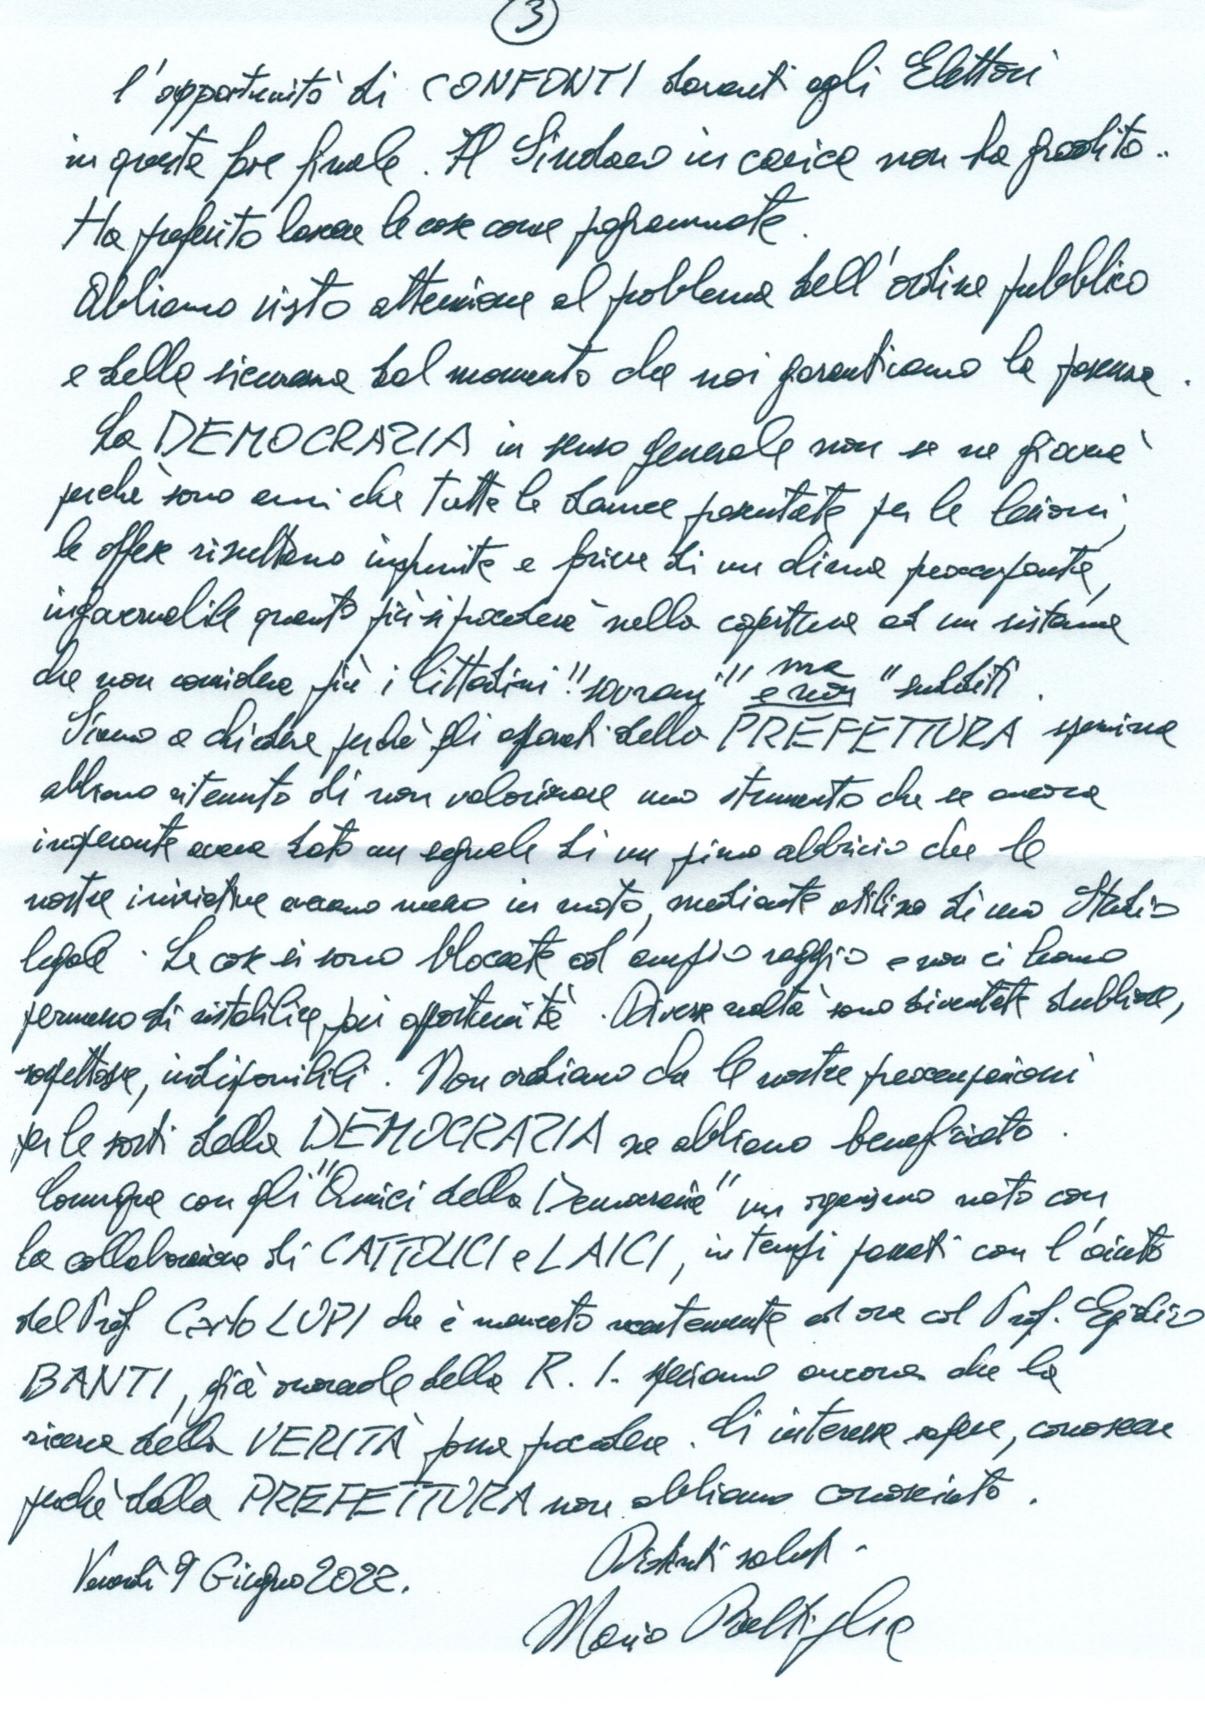 3
l'opportunità di CONFONTI davanti agli Elettori
in questa fase finale. Il Sindaco in carica non ha gradito..
Ha preferito lasciare le cose come programmate.
Abbiamo visto attenzione al problema dell'ordine pubblico
e della sicurezza dal momento che noi garantivamo la presenza.
La DEMOCRAZIA in senso generale non se ne gioverà
perchè sono anni che tutte le denunce presentate per le lesioni,
le offese risultano impunite e foriere di un clima preoccupante,
ingovernabile quanto più si procederà nella copertura ad un sistema
che non considera più i Cittadini "sovrani" ma e non "sudditi".
Siamo a chiedere perchè gli apparati della PREFETTURA spezzina
abbiano ritenuto di non valorizzare uno strumento che se ancora
imperante aveva dato un segnale di un primo abbrivio che le
nostre iniziative avevano messo in moto, mediante utilizzo di uno Studio
legale. Le cose si sono bloccate ad ampio raggio e non ci hanno
permesso di ristabilire pari opportunità. Diverse realtà sono diventate dubbiose,
sospettose, indisponibili. Non crediamo che le nostre preoccupazioni
per le sorti della DEMOCRAZIA ne abbiano beneficiato.
Comunque con gli "Amici della Democrazia" un organismo nato con
la collaborazione di CATTOLICI e LAICI, in tempi passati con l'aiuto
del Prof. Carlo LUPI che è mancato recentemente ed ora col Prof. Egidio
BANTI, già onorevole della R. I. speriamo ancora che la
ricerca della VERITÀ possa procedere. Ci interessa sapere, conoscere
perchè dalla PREFETTURA non abbiamo conosciuto.
Venerdì 9 Giugno 2022.
Distinti saluti -
Mario Battiglia